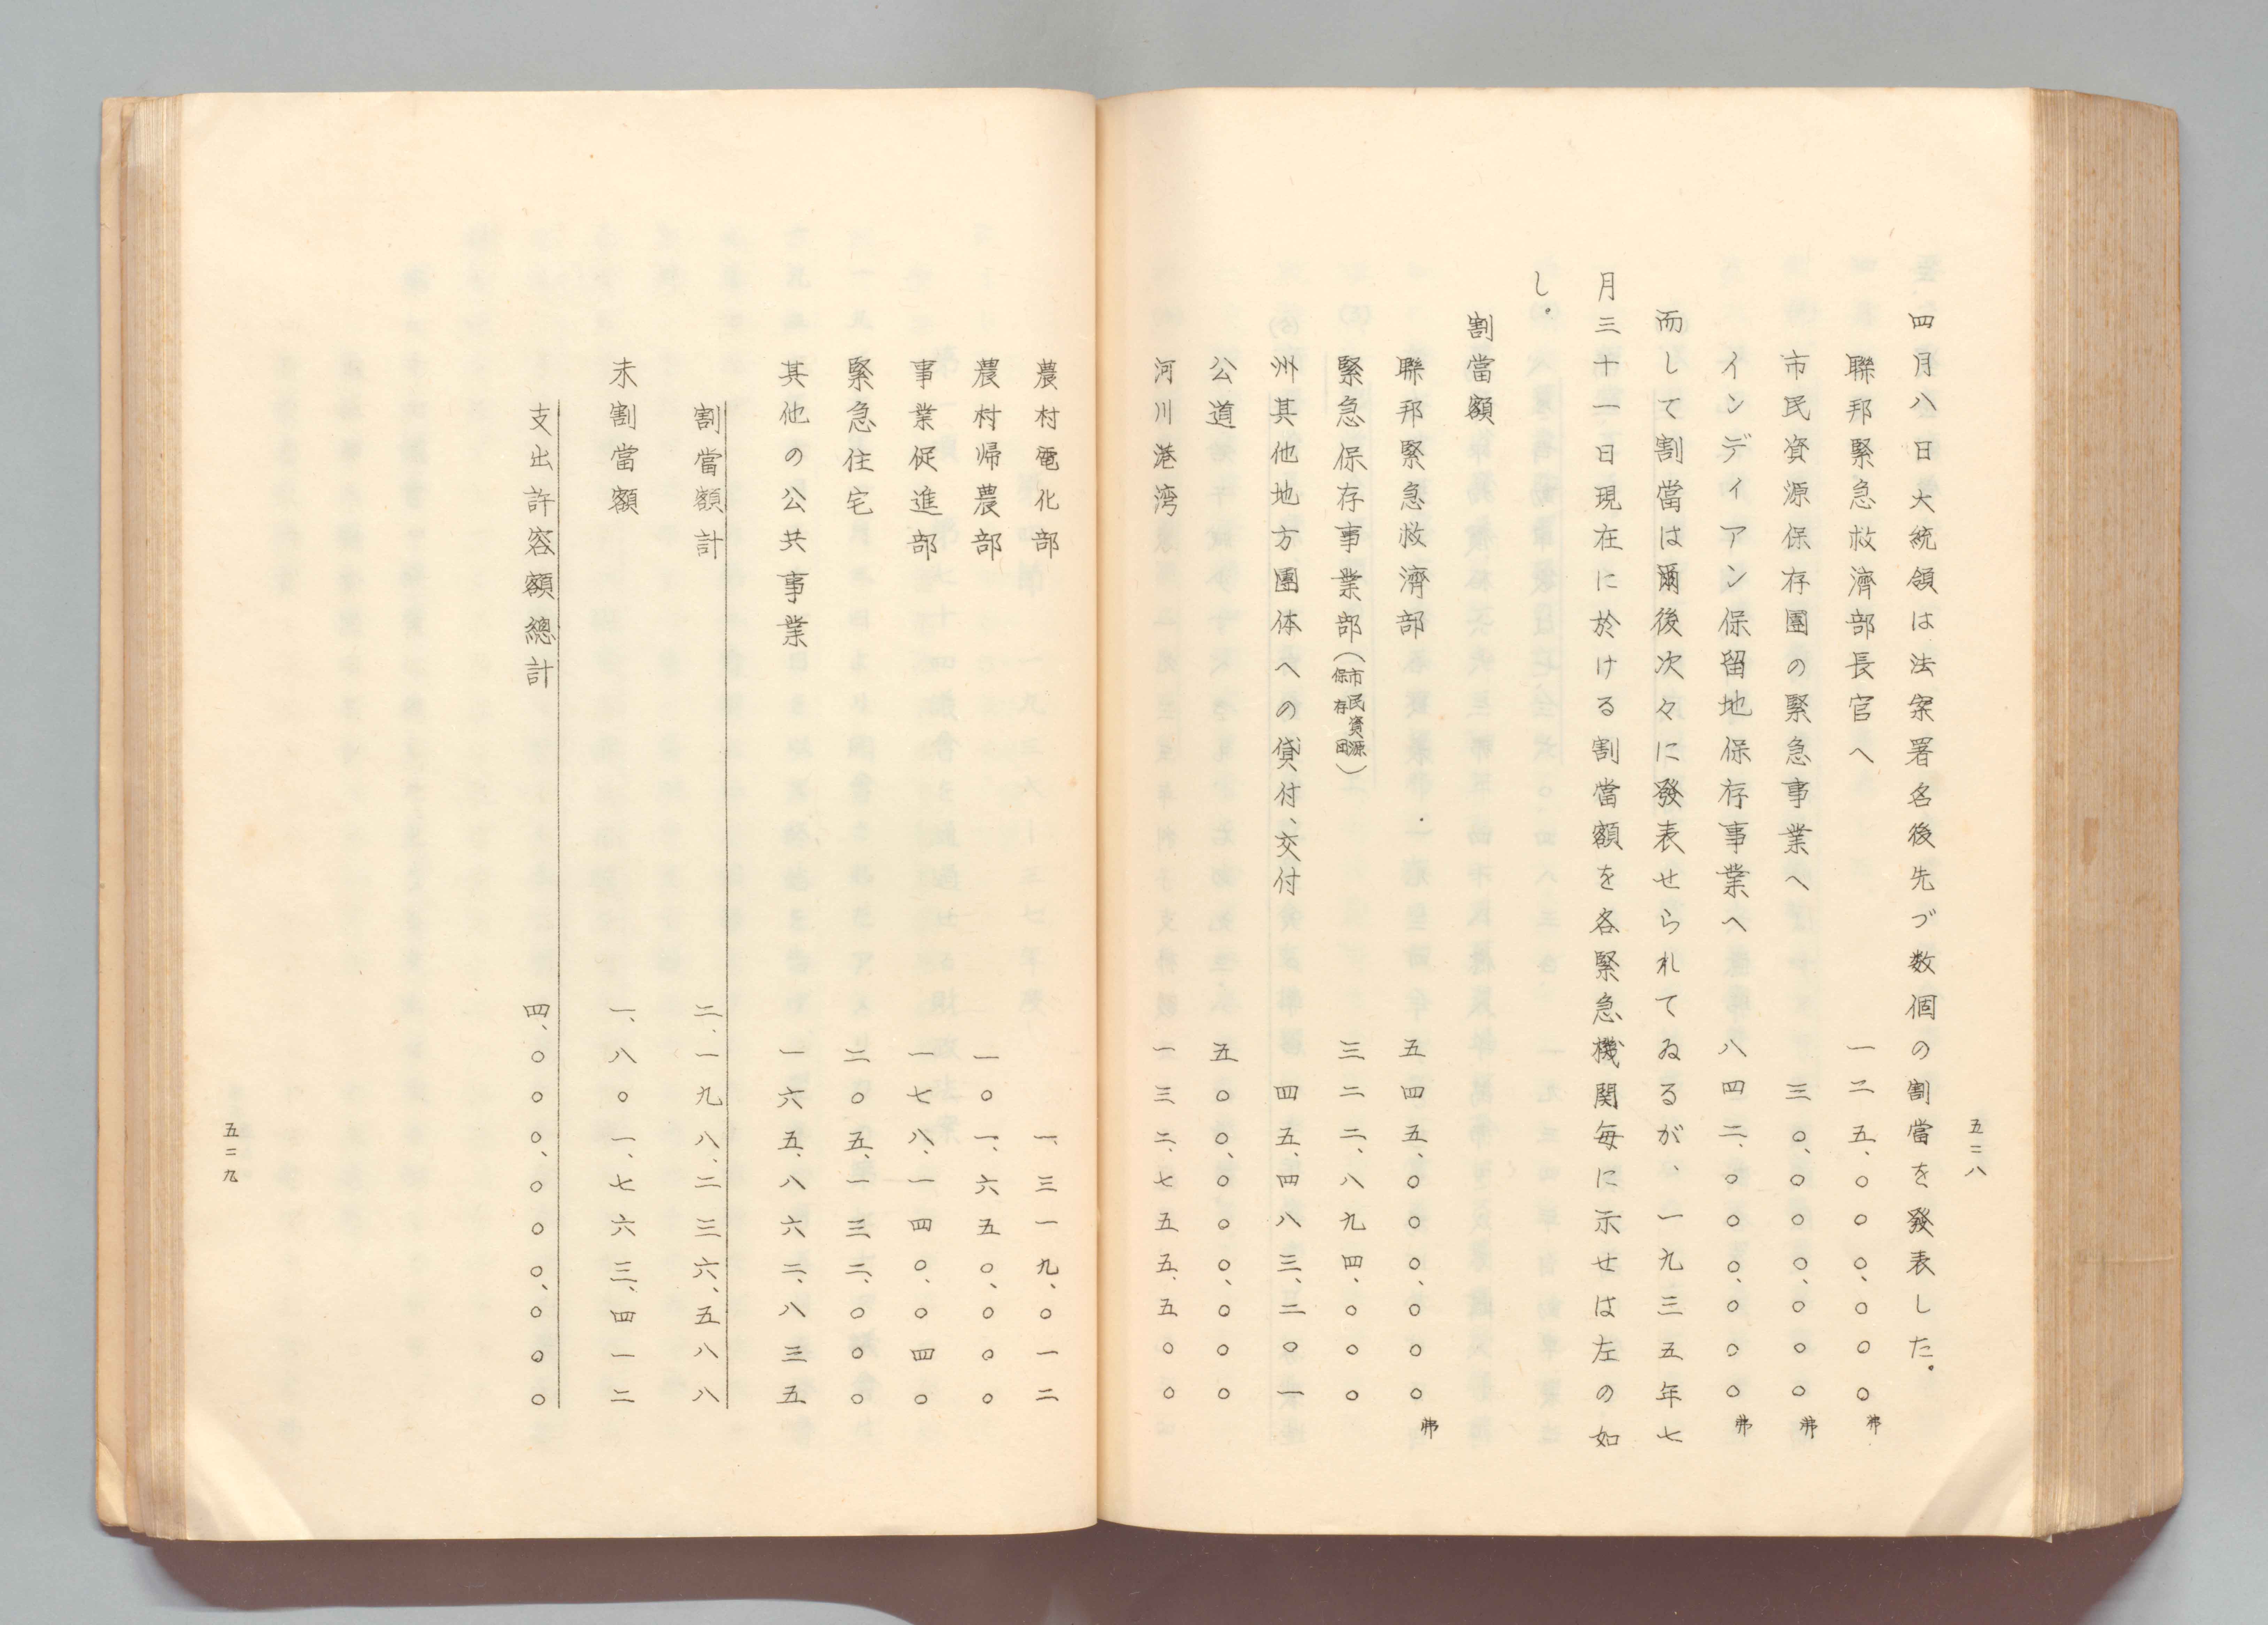 五二八
四月八日大統領は法案署名後先づ数個の割當を發表した。
聯邦緊急救濟部長官へ 一二五、〇〇〇、〇〇〇弗
市民資源保存團の緊急事業へ 三〇、〇〇〇、〇〇〇弗
インディアン保留地保存事業へ 八四二、〇〇〇、〇〇〇弗
而して割當は爾後次々に發表せられてゐるが、一九三五年七
月三十一日現在に於ける割當額を各緊急機関毎に示せば左の如
し。
割當額
聯邦緊急救濟部 五四五、〇〇〇、〇〇〇弗
緊急保存事業部(市民資源保存団) 三二二、八九四、〇〇〇
州其他地方團体への貸付、交付 四五、四八三、二〇一
公道 五〇〇、〇〇〇、〇〇〇
河川港湾 一三二、七五五、五〇〇
農村電化部 一、三一九、〇一二
農村帰農部 一〇一、六五〇、〇〇〇
事業促進部 一七八、一四〇、〇四〇
緊急住宅 二〇五、一三二、〇〇〇
其他の公共事業 一六五、八六二、八三五
割當額計 二、一九八、二三六、五八八
未割當額 一、八〇一、七六三、四一二
支出許容額總計 四、〇〇〇、〇〇〇、〇〇〇
五二九